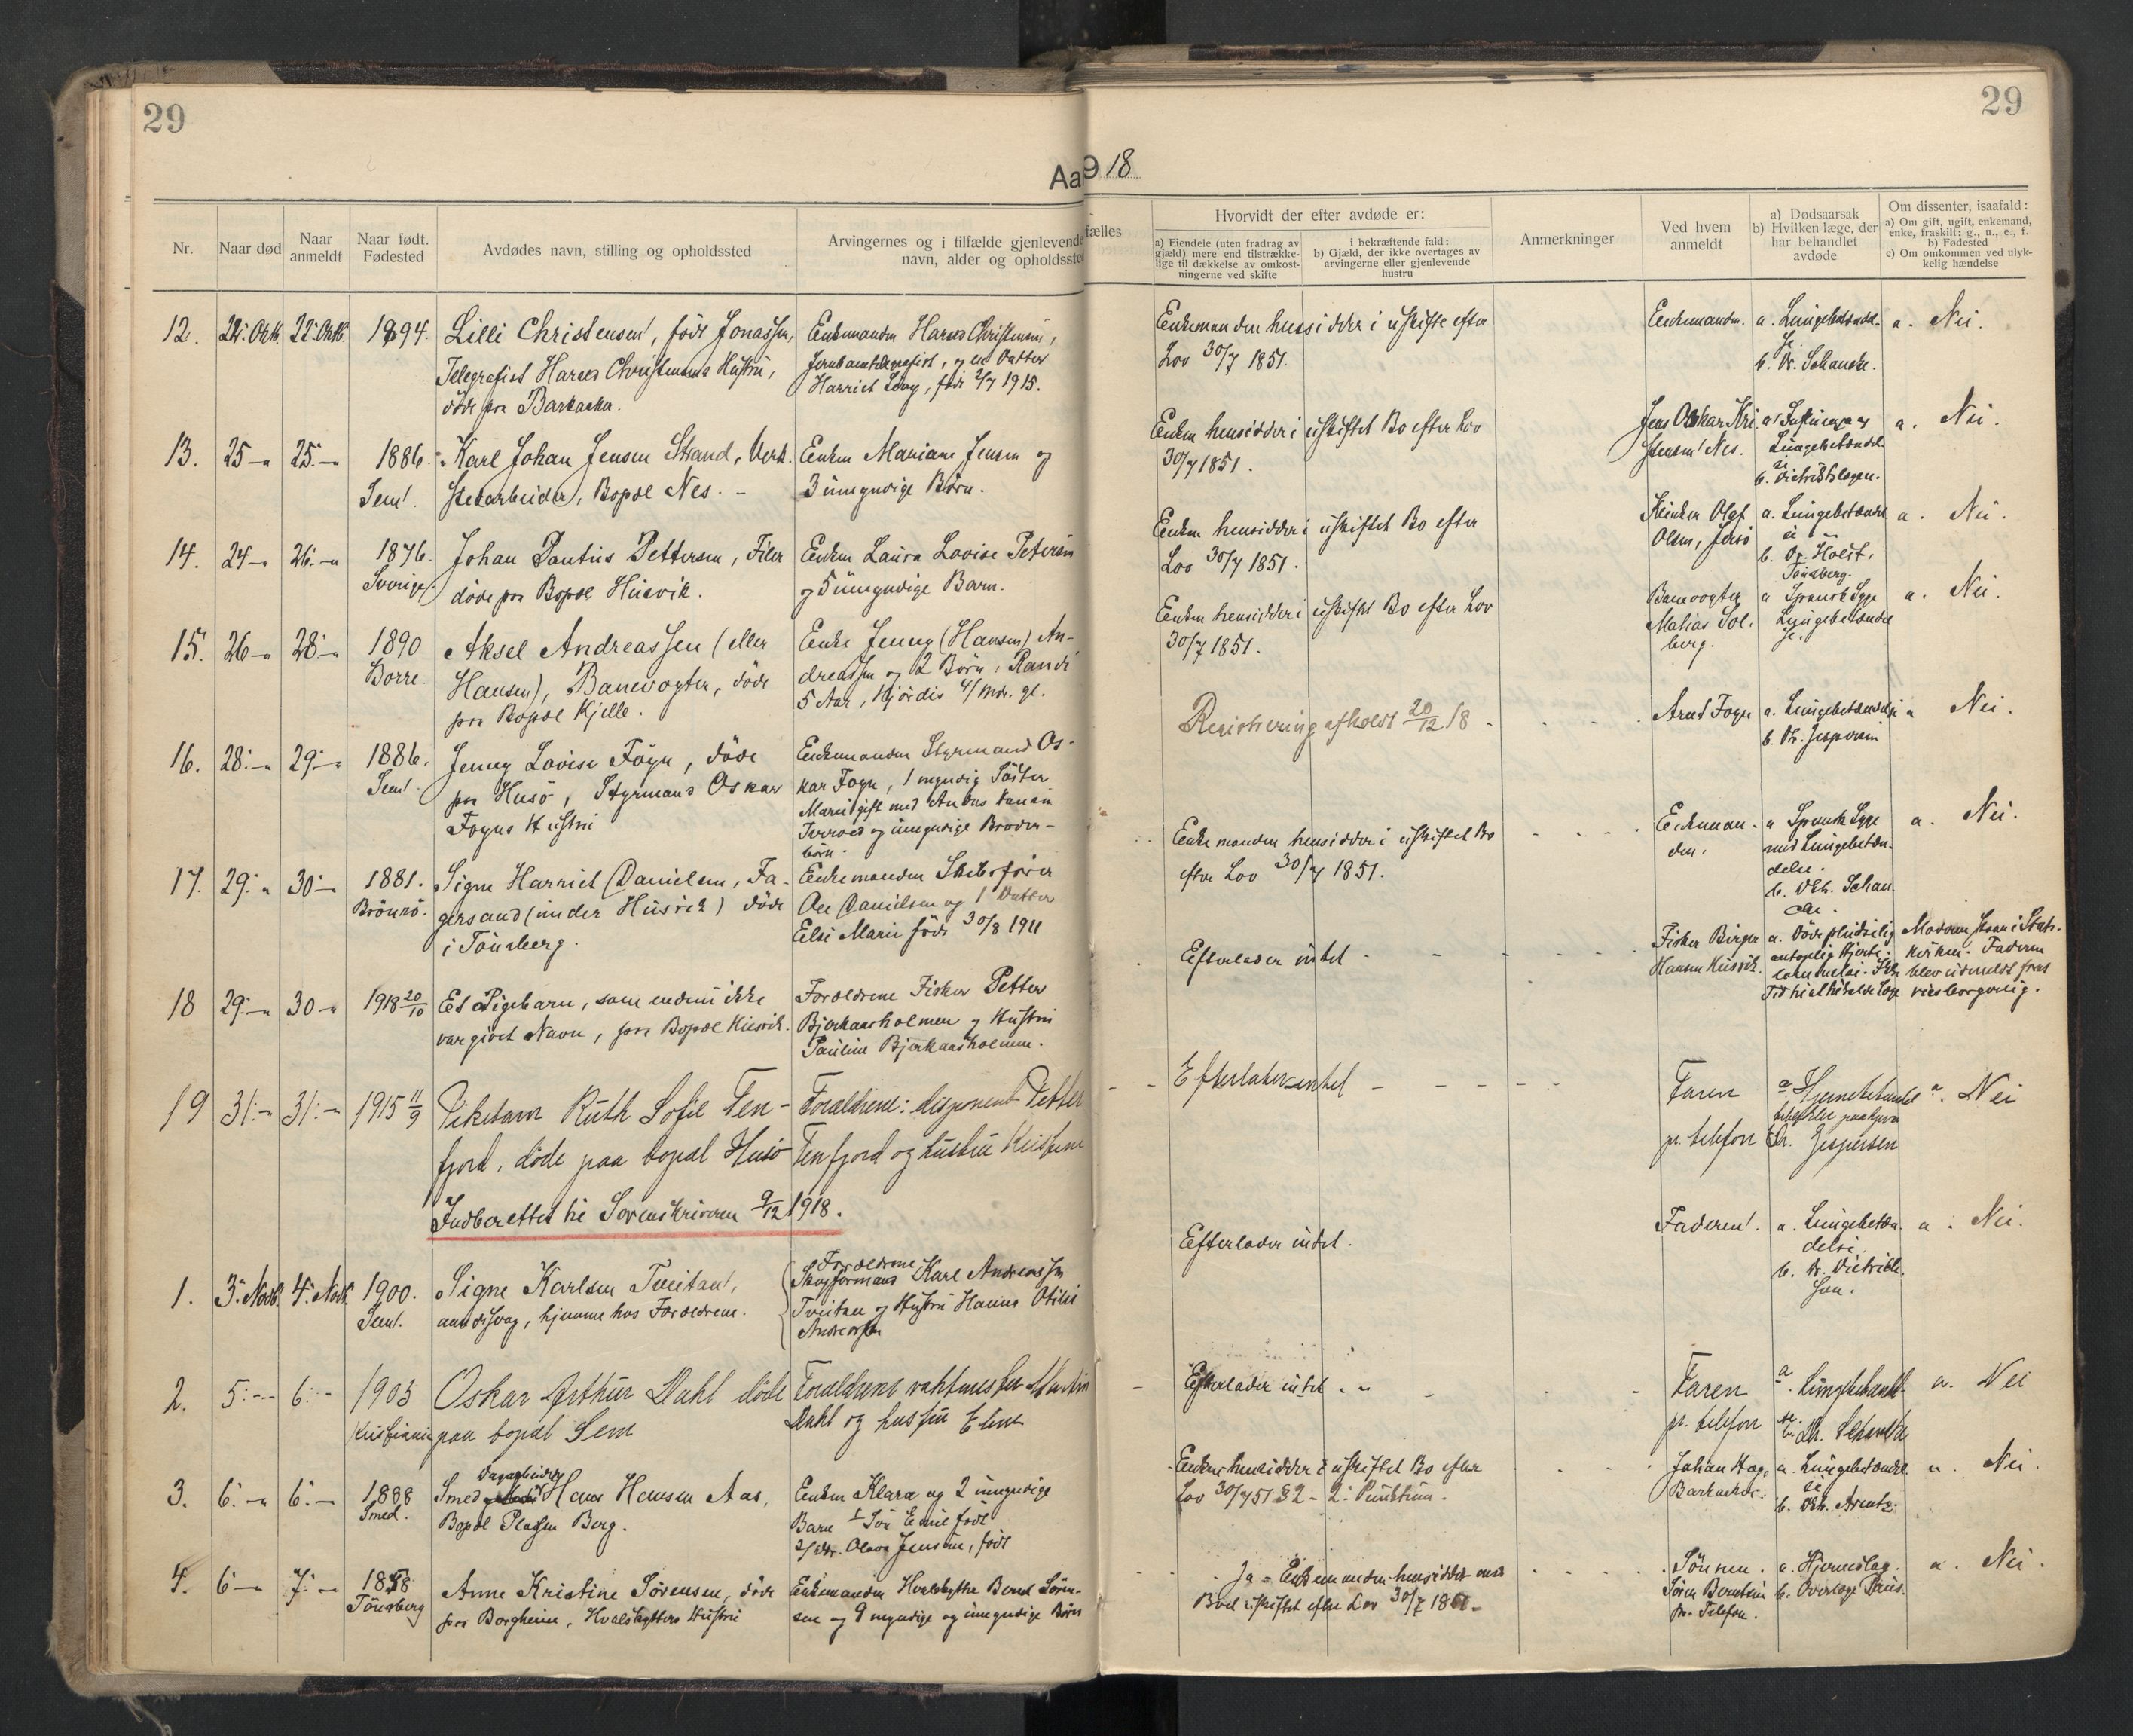 29
29
Aa
918
Nr.
Naar død
Naar anmeldt
Naar født. Fødested
Avdødes navn, stilling og opholdssted
Arvingernes og i tilfælde gjenlevende
navn, alder og opholdsste
fælles
Hvorvidt der efter avdøde er:
a) Eiendele (uten fradrag av gjæld) mere end tilstrækkelige til dækkelse av omkostningerne ved skifte
i bekræftende fald:
b) Gjæld, der ikke overtages av arvingerne eller gjenlevende hustru
Anmerkninger
Ved hvem anmeldt
a) Dødsaarsak
b) Hvilken læge, der har behandlet avdøde
Om dissenter, isaafald:
a) Om gift, ugift, enkemand, enke, fraskilt: g., u., e., f.
b) Fødested
c) Om omkommen ved ulykkelig hændelse
12. 22: Oktb. 22: Oktb. 1894. Lilli Christensen, født Jonassen,
Telegrafist Harald Christensens Hustru,
døde paa Barkaaker.
Enkemanden Harald Christensen,
Jernbanetelegrafist, og en Datter
Harriet Lovy, født 2/7 1915.
Enkemanden hensidder i uskifte efter
Lov 30/7 1851.
Enkemanden.
a. Lungebetændel-
se
b. Dr. Schancke.
a. Nei.
13. 25 -"- 25 -"- 1886. Sem. Karl Johan Jensen Strand, Verk-
stedarbeider, Bopæl Nes. -
Enken Mariane Jensen og
3 umyndige Børn.
Enken hensidder i uskiftet Bo efter Lov
30/7 1851.
Jens Oskar Kri-
stensen Nes.
a. Influenza og
Lungebetændel-
se
b. Distriktslægen.
a. Nei.
14. 24 -"- 26. -"- 1876. Sverige. Johan Pontus Pettersen, Filer
døde paa Bopæl Husvik.
Enken Laura Lovise Petersen
og 5 umyndige Barn.
Enken hensidder i uskiftet Bo efter
Lov 30/7 1851.
Olaf
Olsen, Jersø
a. Lungebetændel-
se
b. Dr. Holst,
Tønsberg.
a. Nei.
15. 26 -"- 28 -"- 1890 Borre. Aksel Andreassen (eller
Hansen), Banevogter, døde
paa Bopæl Kjelle.
Enke Jenny (Hansen) An-
dreassen og 2 Børn, Randi
5 Aar, Hjørdis 4 Mdr. gl.
Enken hensidder i uskiftet Bo efter Lov
30/7 1851.
Banevogter
Matias Sol-
berg.
a. Spansk Syge
Lungebetændel-
se.
a. Nei.
16. 28: -"- 29: -"- 1886. Sem. Jenny Lovise Føyn, døde
paa Husø, Styrmand Oskar
Foyns Hustru
Enkemanden Styrmand Os-
kar Foyn, 1 myndig Søster
Marie gift med
og umyndige Broder-
børn.
Registrering afholdt 20/12 18
Arnt Foyn
a. Lungebetændelse
b. Dr. Jespersen
a. Nei.
17. 29: -"- 30: -"- 1881. Brønnø. Signe Harriet Danielsen, Fa-
gersand (under Husvik) døde
i Tønsberg.
Enkemanden Skibsfører
Danielsen og 1 Datter
Elsi Marie født 30/8 1911
Enkemanden hensidder i uskiftet Bo
efter Lov 30/7 1851.
Enkeman-
den.
a Spansk Syge
med Lungebetæn-
delse.
b. Dr. Schan-
cke.
a. Nei.
18 29: -"- 30 -"- 1918 20/10 Et Pigebarn, som endnu ikke
var givet Navn, paa Bopæl Husvik.
Forældrene Fisker Petter
Bjerkaasholmen og Hustru
Pauline Bjerkaasholmen.
Efterlader intet
Fisker Birger
Hansen Husvik.
a. Døde pludselig
antagelig Hjerte-
Moderen staar i Stats-
kirken. Faderen
blev udmeldt først
viet borgerlig.
19 31: -"- 31: -"- 1915 11/9 Pikebarn Ruth Sofie Ten-
fjord, døde paa bopæl Husø
Forældrene: disponent Petter
Tenfjord og hustru Kristine
Efterlater intet
Faren
pr. telefon
b. Dr. Jespersen
a. Nei
Indberettet til Sorenskriveren 9/12 1918.
1. 3: Novb. 4: Novb. 1900. Sem. Signe Karlsen Tveitan,
aandssvag, hjemme hos Forældrene.
Forældrene
Karl Andreassen
Tveitan og Hustru Hanna Otilie
Andreassen
Efterlader intet.
Faderen.
a. Lungebetæn-
delse.
b. Dr. Didrik-
sen.
a. Nei.
2. 5: -"- 6: -"- 1903 Kristiania Oskar Arthur Dahl døde
paa bopæl Sem
Forældrene vaktmester Martin
Dahl og hustru Elene
Efterlader intet
Faren
pr. telefon
a. Lungebetændel-
se.
b. Dr. Schancke
a. Nei
3. 6: -"- 6: -"- 1888 Smed. Dagarbeider
Smed Hans Hansen Aas,
Bopæl Pladsen Berg.
Enken Klara og 2 umyndige
Barn 1 Søn Emil født
2/ Dtr. Olava Jensine, født
Enken hensidder i uskiftet Bo efter
Lov 30/7 51 § 2 - 2: Punktum.
Johan Hag,
Barkaaker.
a. Lungebetændel-
se
b. Dr. Arentz.
a. Nei.
4. 6 -"- 7: -"- 1858 Tønsberg Anne Kristine Sørensen, døde
paa Borgheim, Hvalskytters Hustru
Enkemanden Hvalskytter Bernt Søren-
sen og 9 myndige og umyndige Børn
Ja - Enkemanden hensidder med
Boet uskiftet efter Lov 30/7 1851.
Sønnen.
Søren Berntsen
pr. Telefon.
a. Hjerneslag.
b. Overlæge
a. Nei.